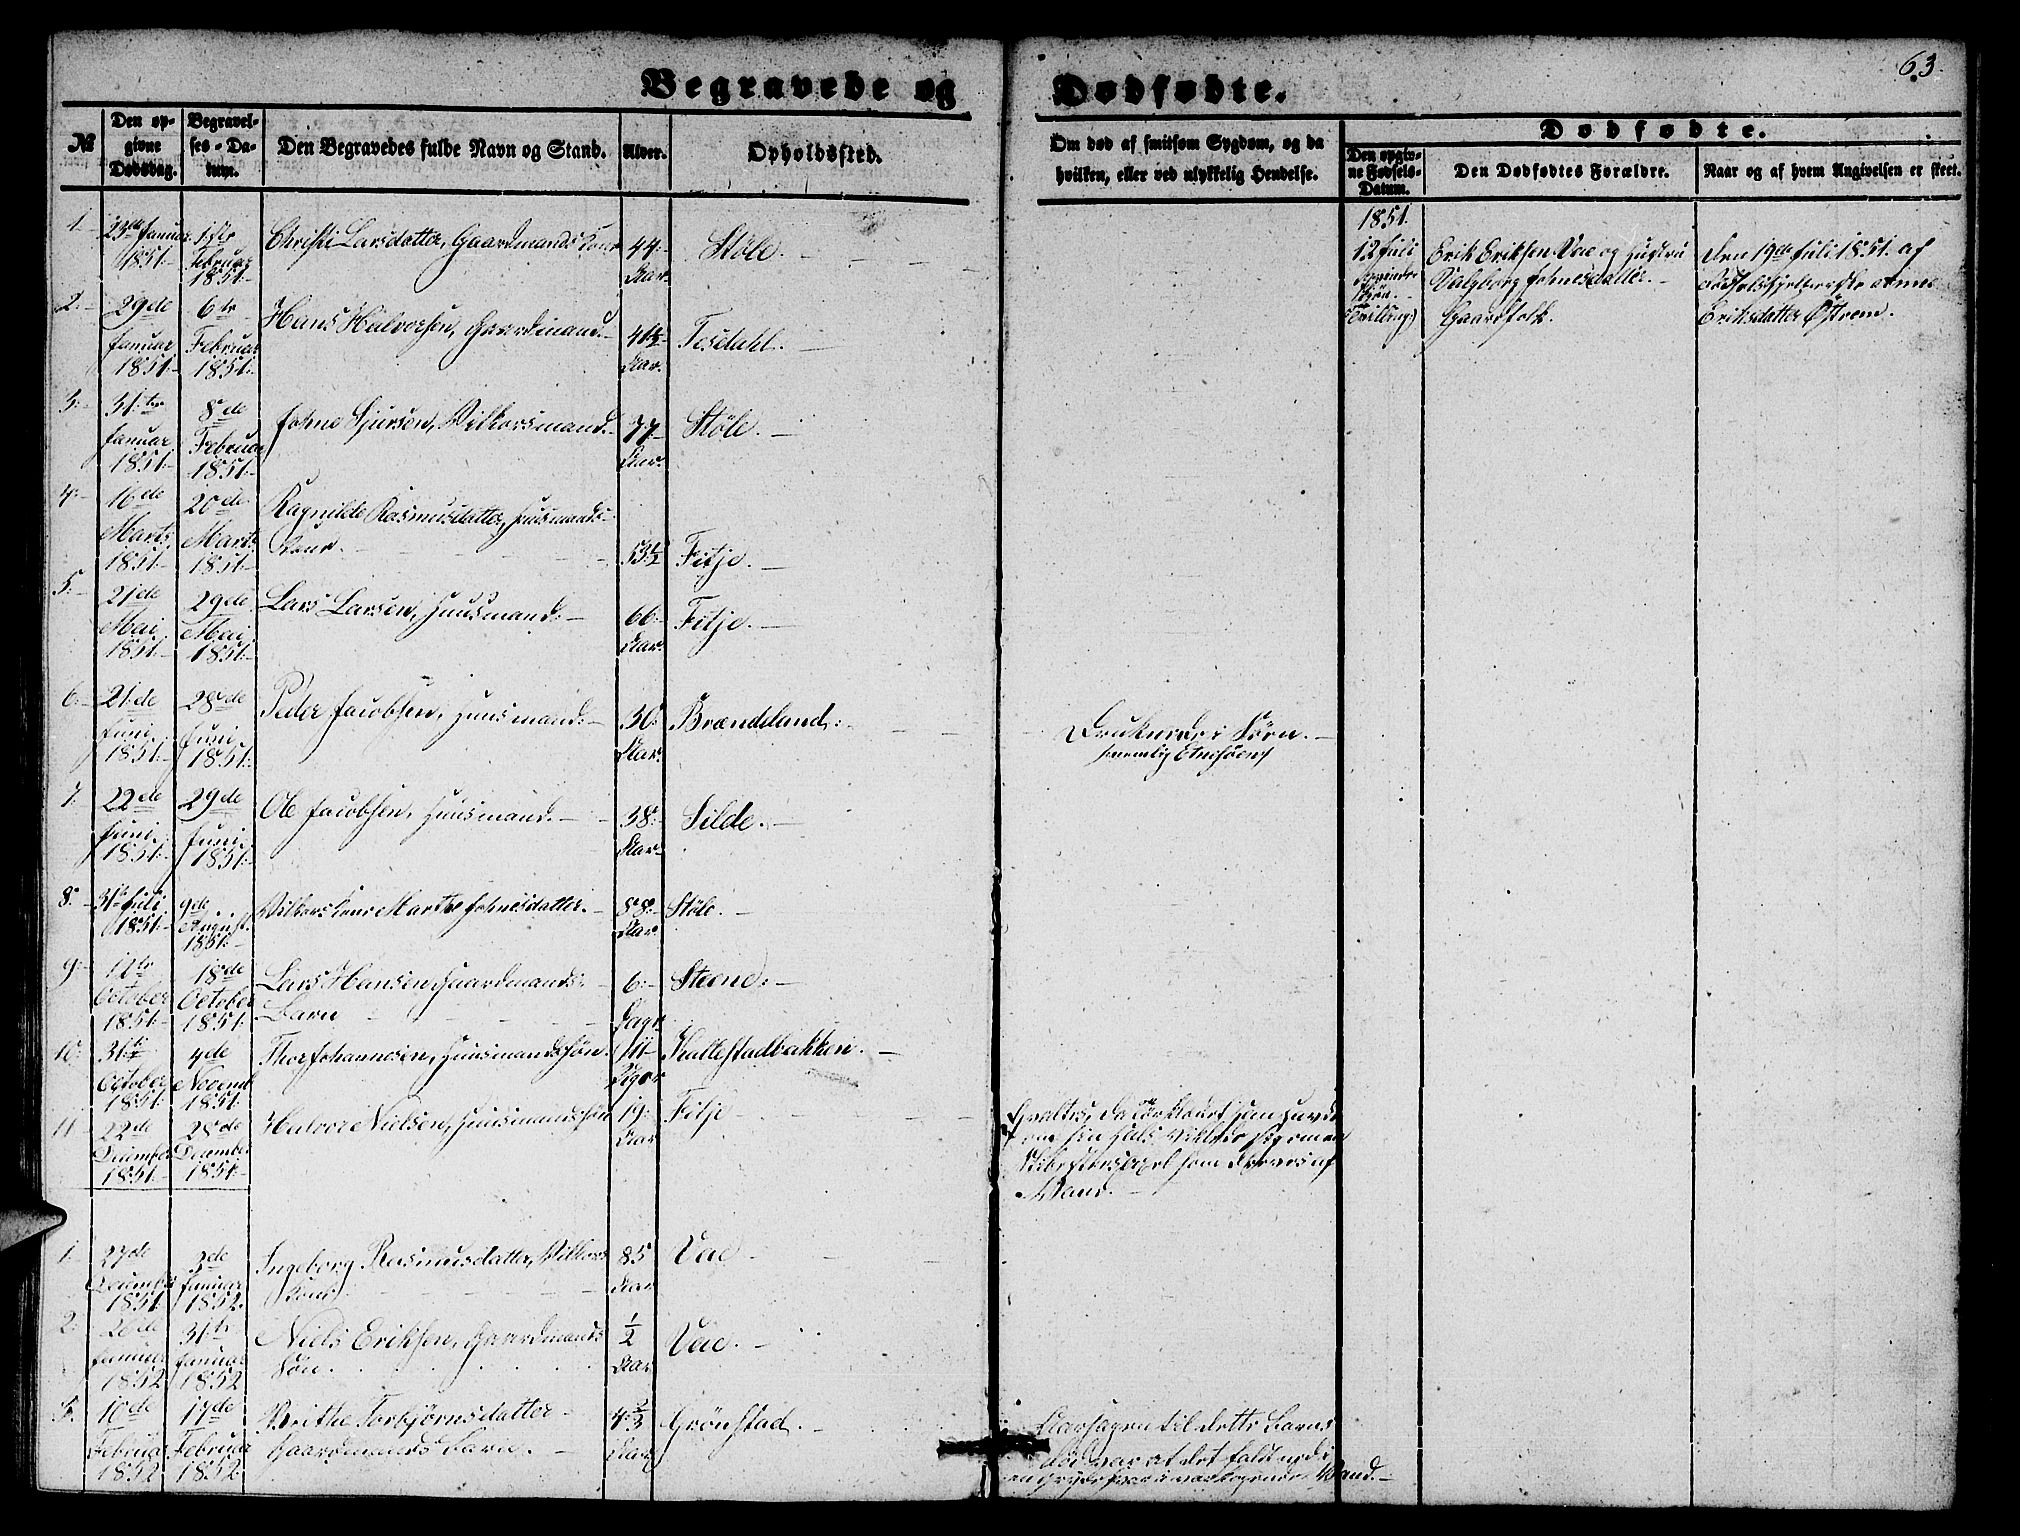 63.
Begravede og Dødfødte.
№
Den opgivne Dødsdag.
Begravelses-Datum.
Den Begravedes fulde Navn og Stand.
Alder.
Opholdssted.
Om død af smitsom Sygdom, og da hvilken, eller ved ulykkelig Hendelse.
Dødfødte.
Den opgivne Fødsels-Datum.
Den Dødfødtes Forældre.
Naar og af hvem Angivelsen er skeet.
1. 23de Januar 1851. 1ste Februar 1851. Christi Larsdatter, Gaardmandskone 44 Aar. Støle.
2. 29de Januar 1851. 6te Februar 1851. Hans Halvorsen, Gaardmand. 41½ Aar. Tesdahl.
3. 31te Januar 1851. 8de Februar 1851. Johne Sjursen, Vilkorsmand. 77 Aar. Støle.
4. 16de Marts 1851. 20de Marts 1851. Ragnilde Rasmusdatter, Huusmands-Kone. 53½ Fitje.
5. 21de Mai 1851. 29de Mai 1851. Lars Larsen, Huusmand. 66 Aar. Fitje.
6. 21de Juni 1851. 28de Juni 1851. Peder Jacobsen, Huusmand. 30 Aar. Brændeland. Druknede i Søen.
nemlig Etnesøen
7. 22de Juni 1851. 29de Juni 1851. Ole Jacobsen, Huusmand. 38 Aar. Silde.
8. 31te Juli 1851. 9de August 1851. Vilkorskone Marthe Johnesdatter. 88 Aar. Støle.
9. 12te October 1851. 18de October 1851. Lars Hansen, Gaardmands-Barn 6 Dage. Steene.
10. 31te October 1851. 4de Novemb. 1851. Thor Johannesen, Huusmandssøn. 11 Uger Kaltestadbakken.
11. 22de December 1851. 28de December 1851. Halvor Nielsen, Huusmandssøn 19 Aar Fitje
om sin Hals
som dreves af
Vand.
1. 27de Decembr 1851. 3de Januar 1852. Ingeborg Rasmusdatter, Vilkors Kone. 85 Aar Vae.
2. 26de Januar 1852 31te Januar 1852 Niels Eriksen, Gaardmands Søn. ½ Aar Vae.
3. 10de Februar 1852 17de Februar 1852. Brithe Torbjørnsdatter Gaardmands Barn. 4⅔ Aar Grønstad. Aarsagen til dette Barns
Død var at det faldt ned i
en Gryde hvori var kogende Vand.
1851.
12 Juli
Erik Eriksen Vae og Hustru Valgborg Johnesdatter. Gaardfolk.
Den 19de Juli 1851 af
Eriksdatter Østrem.